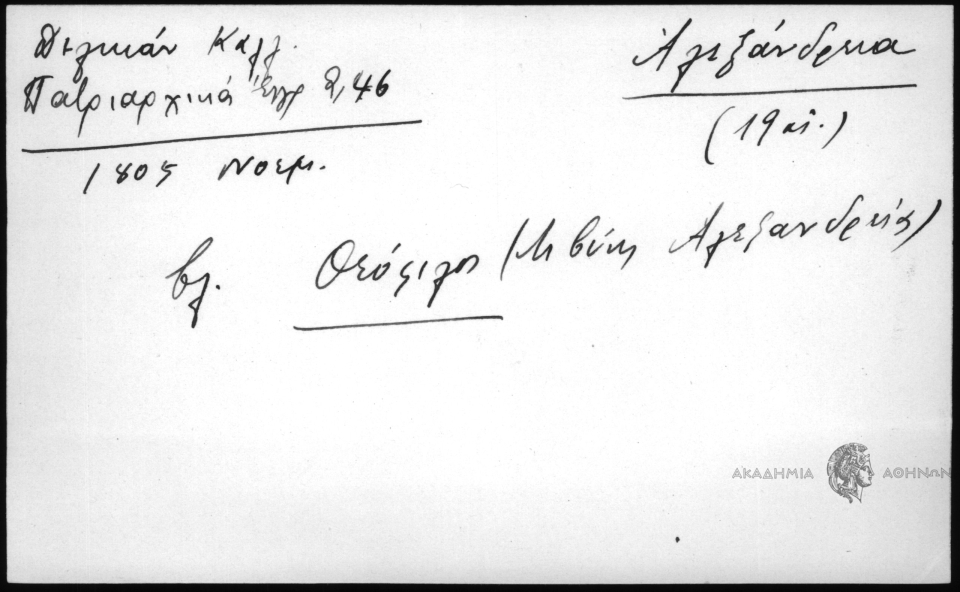 Δελικάν Καλλ.
Πατριαρχικά Έγγρ 2, 46
1805 Νοεμ.
Ἀλεξάνδρεια
(19 αἰ.)
βλ. Θεόφιλος ( Λιβύης Ἀλεξανδρείας)
ΑΚΑΔΗΜΙΑ ΑΘΗΝΩΝ